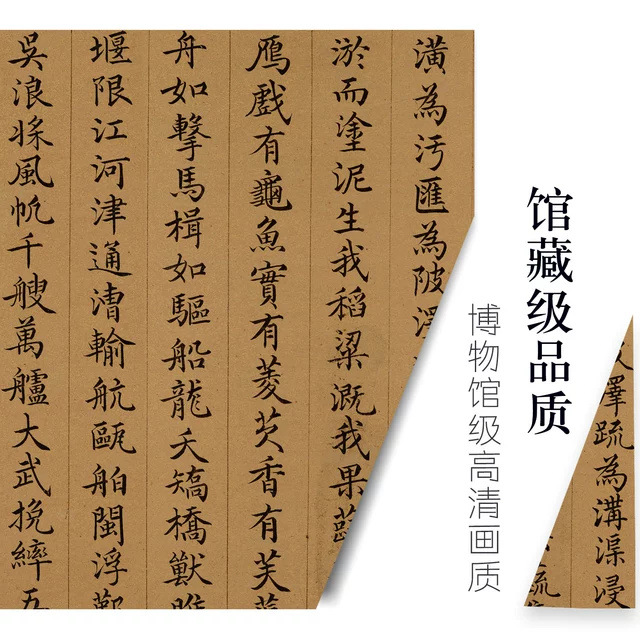 澤疏為溝渠浸
馆藏级品质
博物馆级高清画质
潢為汚匯為陂
淤而塗泥生我稻粱溉我果
鴈戲有龜魚實有菱芡香有芙
舟如擊馬楫如驅船龍夭矯橋獸
堰限江河津通漕輸航甌舶閩浮
吳浪槳風帆千艘萬艫大武挽繂五